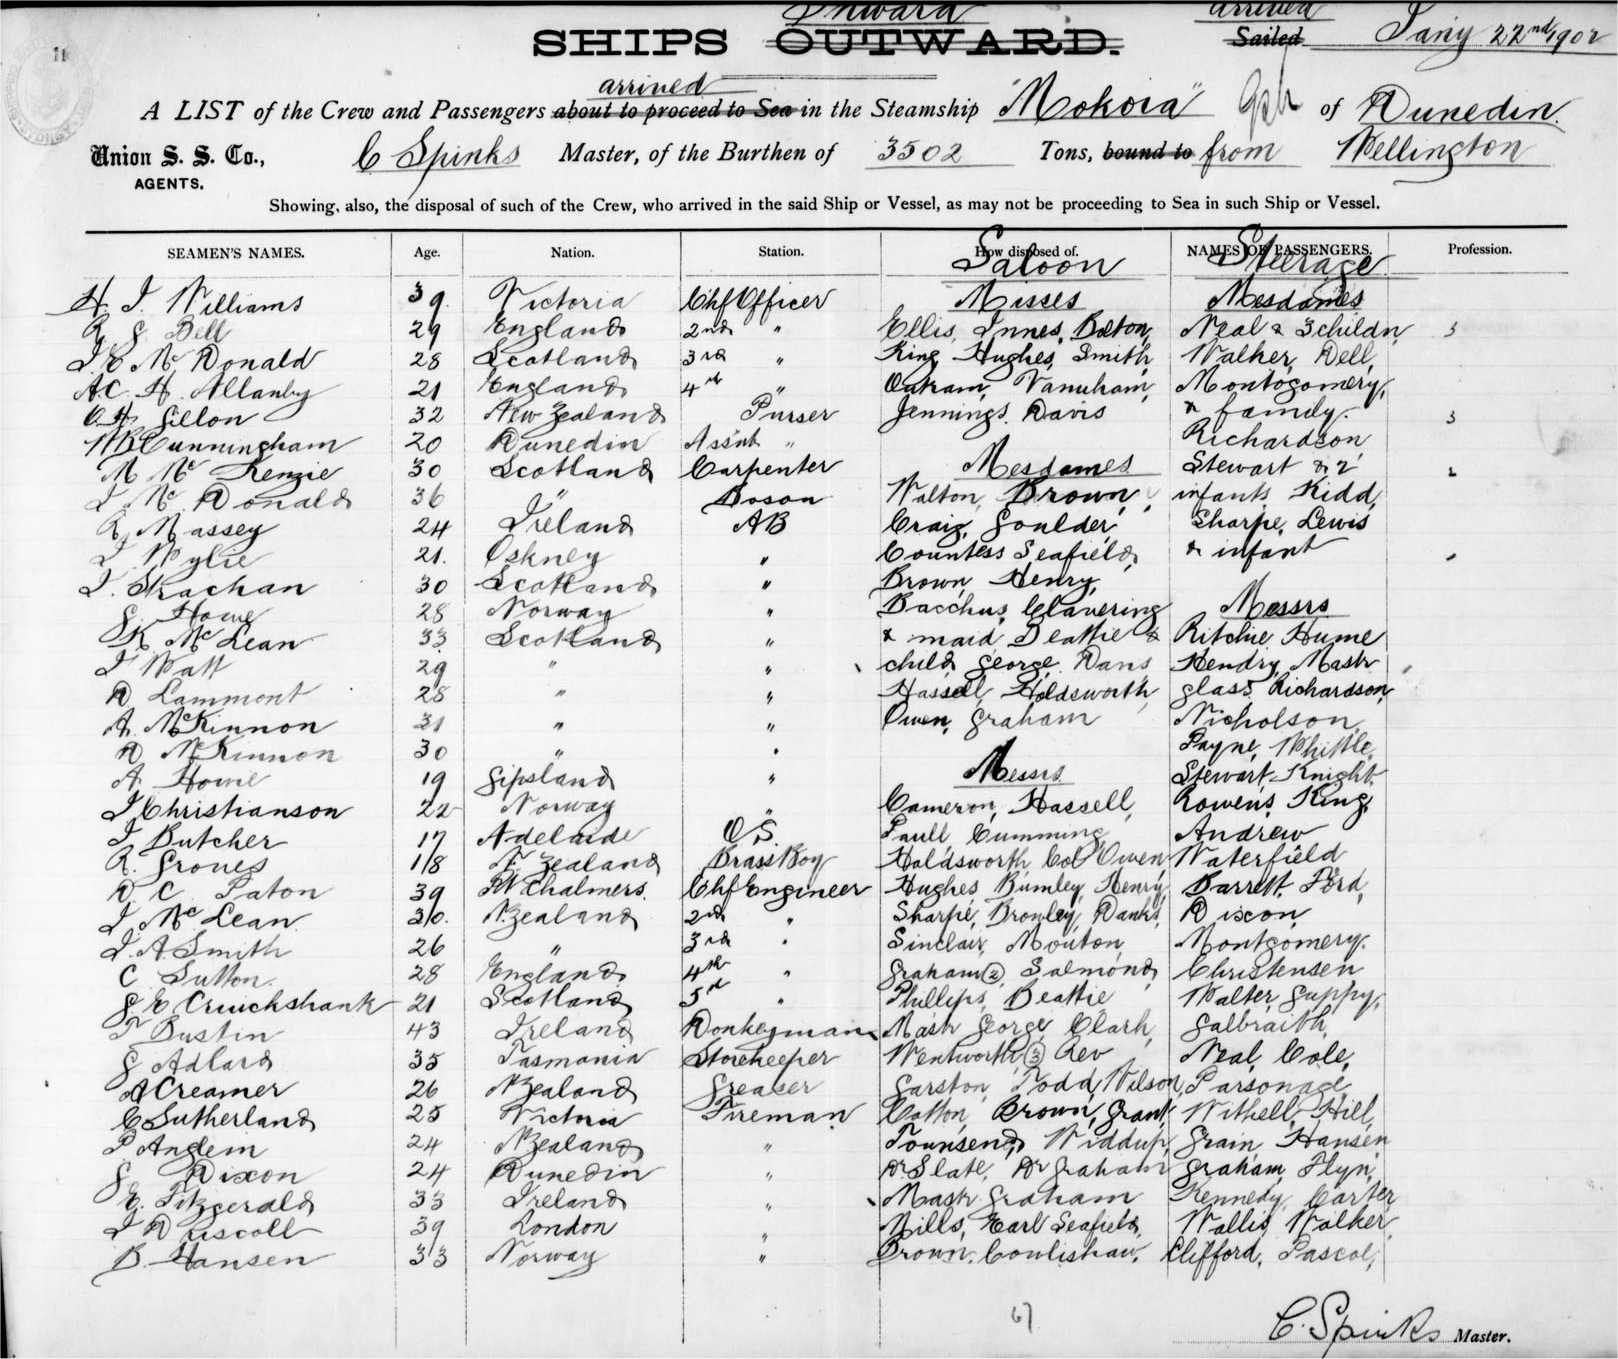 Inward arrived
SHIPS OUTWARD. Sailed Jany 22nd 1902
arrived
A LIST of the Crew and Passengers about to proceed to Sea in the Steamship "Mokoia" of Dunedin.
Union S. S. Co., C Spinks Master, of the Burthen of 3502 Tons, bound to from Wellington
AGENTS.
Showing, also, the disposal of such of the Crew, who arrived in the said Ship or Vessel, as may not be proceeding to Sea in such Ship or Vessel.
SEAMEN'S NAMES. Age. Nation. Station. How disposed of. NAMES OF PASSENGERS. Profession.
Saloon Steerage
H. J. Williams 39 Victoria Chf Officer Misses Mesdames
R G Bell 29 England 2nd " Ellis, Innes, Bolton, Neal & 3 childn, 3
J. E Mc Donald 28 Scotland 3rd " King Hughes, Smith, Walker, Dell,
A.C. H. Allanby 21 England 4th " Oakam, Vanuham, Montogomery,
C H Gillon 32 New Zealand Purser Jennings. Davis & family. 3
W B Cunningham 20 Dunedin Asst " Richardson
M Mc Kenzie 30 Scotland Carpenter Mesdames Stewart & 2 2
J. Mc Donald 36 " Boson Walton, Brown, infants, Kidd,
R. Massey 24 Ireland AB Craig, Goulder, Sharpe, Lewis
J. Wylie 21. Oskney " Countess Seafield, & infant
J. Strachan 30 Scotland " Brown, Henry,
G. Howe 28 Norway " Bacchus, Clavering Messrs
K Mc Lean 33 Scotland " & maid, Beattie & Ritchie, Hume
J Watt 29 " " child, George, Davis Hendry, Mastr
D Lammont 28 " " Hassell, Holdsworth, Glass, Richardson,
A. McKinnon 31 " " Owen, Graham Nicholson,
D McKinnon 30 " " Payne, Whittle,
A. Howe 19 Gipsland " Messrs Stewart, Knight.
J Christianson 22 Norway " Cameron, Hassell, Rowens, King,
J Butcher 17 Adelaide OS. Paull, Cumming, Andrew
R. Groves 18 N Zealand Brass Boy Holdsworth, Col Owen, Waterfield
D C Paton 39 Pt Chalmers. Chf Engineer Hughes, Bumley, Henry, Barrett, Ford,
J. Mc Lean 30. N Zealand 2nd " Sharpe, Bromley, Danks, Dixon,
J. A Smith 26 " 3rd " Sinclair, Mouton, Montgomery.
C. Sutton. 28 England 4th " Graham (2), Salmond, Christensen
G E Cruickshank 21 Scotland 5th " Phillips, Beattie Walter, Guppy,
T Bustin 43 Ireland Donkeyman Mastr George, Clark, Galbraith,
G Adlard 35 Tasmania Storekeeper Wentworth (3) Rev Neal, Cole,
A Creamer 26 N Zealand Greaser Garston, Todd, Wilson, Parsonage
C Sutherland 25 Victoria Fireman Cotton, Brown, Grant, Withell, Hill,
P Anglem 24 N Zealand " Townsend, Widdup, Grain, Hansen
G Dixon 24 Dunedin " Dr Slate, Dr Graham Graham, Flyn,
E. Fitzgerald 33 Ireland " Mastr Graham Kennedy, Carter
J Driscoll 39 London " Mills, Earl Seafield, Wallis, Walker,
B. Hansen 33 Norway " Brown, Cowlishaw, Clifford, Pascoe,
67
C. Spinks Master.